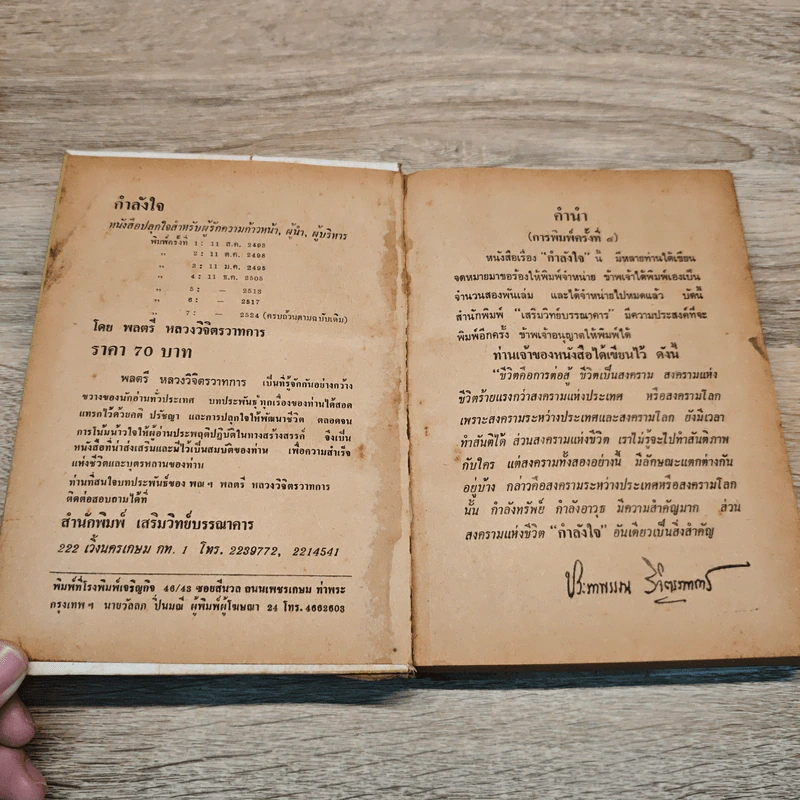 กำลังใจ
หนังสือปลุกใจสำหรับผู้รักความก้าวหน้า, ผู้นำ, ผู้บริหาร
พิมพ์ครั้งที่ 1 : 11 ส.ค. 2493
,, 2 : 11 ต.ค. 2495
,, 3 : 11 ม.ค. 2495
,, 4 : 11 ธ.ค. 2505
,, 5 : — 2513
,, 6 : — 2517
,, 7 : — 2524 (ครบถ้วนตามฉบับเดิม)
โดย พลตรี หลวงวิจิตรวาทการ
ราคา 70 บาท
พลตรี หลวงวิจิตรวาทการ เป็นที่รู้จักกันอย่างกว้าง
ขวางของนักอ่านทั่วประเทศ บทประพันธ์ทุกเรื่องของท่านได้สอด
แทรกไว้ด้วยคติ ปรัชญา และการปลุกใจให้พัฒนาชีวิต ตลอดจน
การโน้มน้าวใจให้ผู้อ่านประพฤติปฏิบัติในทางสร้างสรรค์ จึงเป็น
หนังสือที่น่าส่งเสริมและมีไว้เป็นสมบัติของท่าน เพื่อความสำเร็จ
แห่งชีวิตและบุตรหลานของท่าน
ท่านที่สนใจบทประพันธ์ของ พณฯ พลตรี หลวงวิจิตรวาทการ
ติดต่อสอบถามได้ที่
สำนักพิมพ์ เสริมวิทย์บรรณาคาร
222 เวิ้งนครเกษม กท. 1 โทร. 2239772, 2214541
พิมพ์ที่โรงพิมพ์เจริญกิจ 46/43 ซอยสีนวล ถนนเพชรเกษม ท่าพระ
กรุงเทพฯ นายวัลลภ ปิ่นมณี ผู้พิมพ์ผู้โฆษณา 24 โทร. 4662603
คำนำ
(การพิมพ์ครั้งที่ ๔)
หนังสือเรื่อง "กำลังใจ" นี้ มีหลายท่านได้เขียน
จดหมายมาขอร้องให้พิมพ์จำหน่าย ข้าพเจ้าได้พิมพ์เองเป็น
จำนวนสองพันเล่ม และได้จำหน่ายไปหมดแล้ว บัดนี้
สำนักพิมพ์ "เสริมวิทย์บรรณาคาร" มีความประสงค์ที่จะ
พิมพ์อีกครั้ง ข้าพเจ้าอนุญาตให้พิมพ์ได้
ท่านเจ้าของหนังสือได้เขียนไว้ ดังนี้
"ชีวิตคือการต่อสู้ ชีวิตเป็นสงคราม สงครามแห่ง
ชีวิตร้ายแรงกว่าสงครามแห่งประเทศ หรือสงครามโลก
เพราะสงครามระหว่างประเทศและสงครามโลก ยังมีเวลา
ทำสันติได้ ส่วนสงครามแห่งชีวิต เราไม่รู้จะไปทำสันติภาพ
กับใคร แต่สงครามทั้งสองอย่างนี้ มีลักษณะแตกต่างกัน
อยู่บ้าง กล่าวคือสงครามระหว่างประเทศหรือสงครามโลก
นั้น กำลังทรัพย์ กำลังอาวุธ มีความสำคัญมาก ส่วน
สงครามแห่งชีวิต "กำลังใจ" อันเดียวเป็นสิ่งสำคัญ
ประภาพรรณ วิจิตรวาทการ